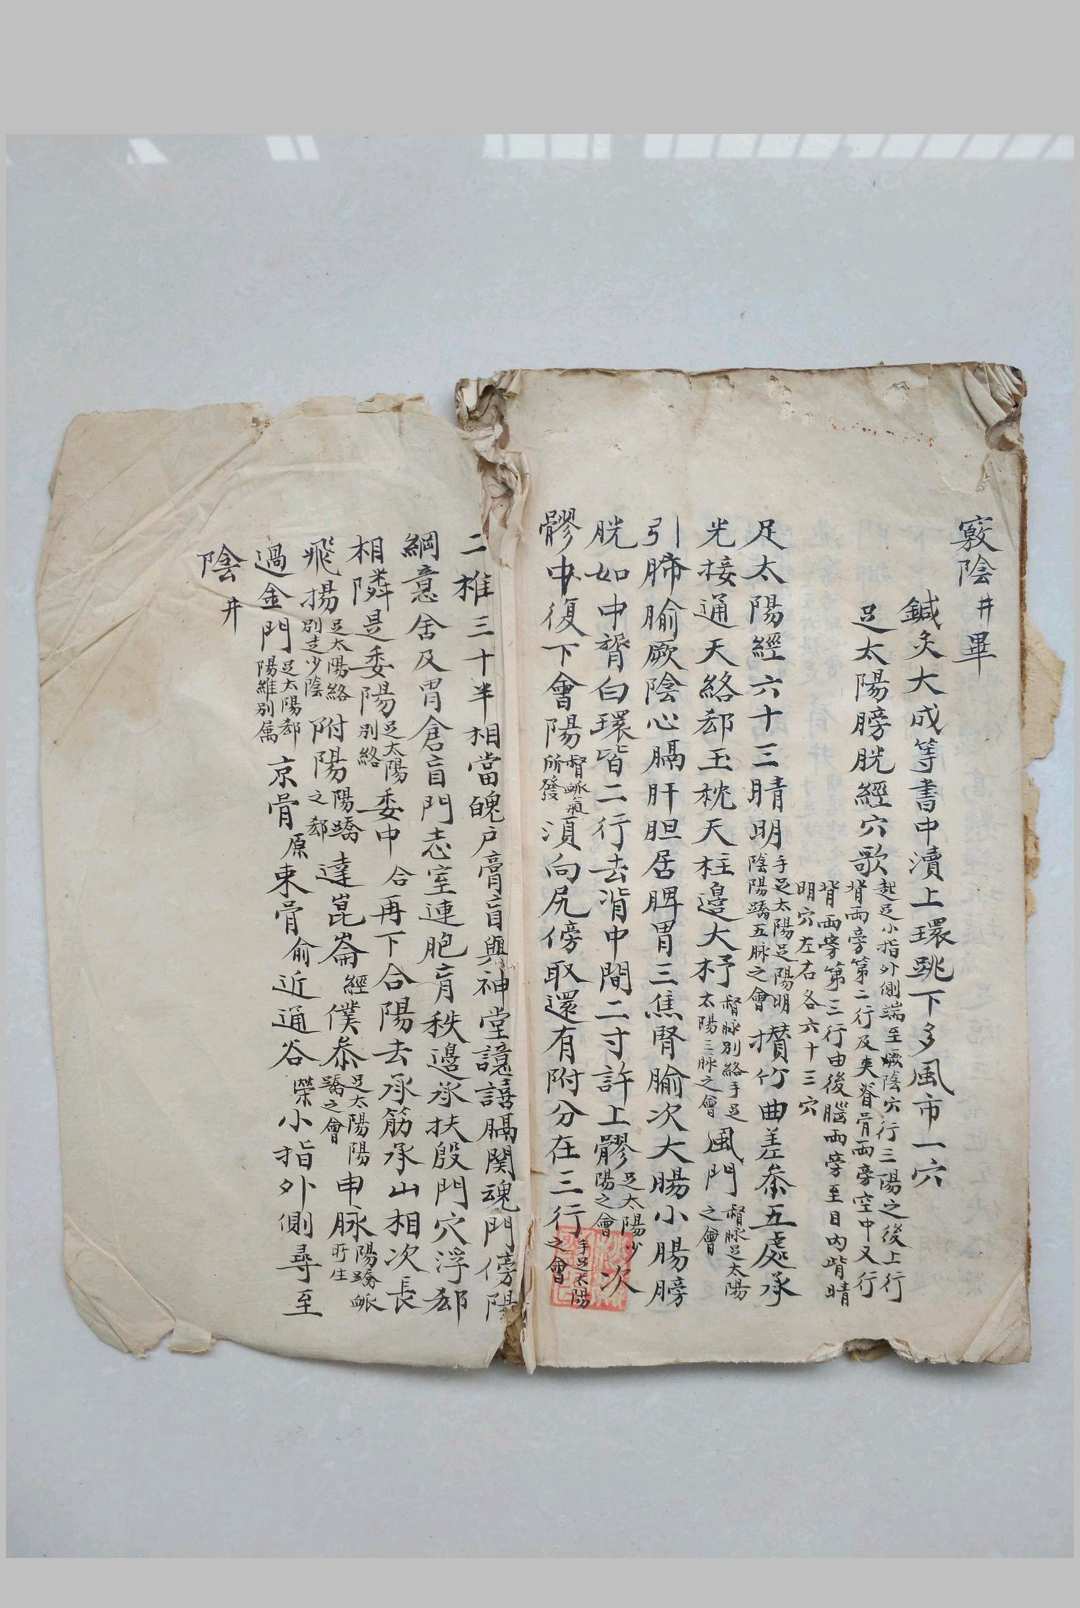 竅陰井畢
鍼灸大成等書中瀆上環跳下多風市一穴
足太陽膀胱經穴歌起足小指外側端至厥陰穴行三陽之後上行
背兩旁第二行及夾脊骨兩旁空中又行
背兩旁第三行由後腦兩旁至目內眥睛
明穴左右各六十三穴
足太陽經六十三睛明手足太陽足陽明陰陽蹻五脉之會攅竹曲差叅五處承
光接通天絡郄玉枕天柱邊大杼督脉別絡手足太陽三脉之會風門督脉足太陽之會
引肺腧厥陰心膈肝胆居脾胃三焦腎腧次大腸小腸膀
胱如中膂白環皆二行去脊中間二寸許上髎足太陽少陽之會次
髎中復下會陽督脈氣所發湏向尻傍取還有附分在三行手足太陽之會
二椎三十半相當魄户膏肓與神堂譩譆膈関魂門傍陽
綱意舍及胃倉肓門志室連胞肓秩邊承扶殷門穴浮郄
相隣是委陽足太陽別絡委中合再下合陽去承筋承山相次長
飛揚足太陽絡別走少陰附陽陽蹻之郄達崑崙經僕叅足太陽陽蹻之會申脉陽蹻脈所生
過金門足太陽郄陽維別屬京骨原束骨俞近通谷滎小指外側尋至
陰井